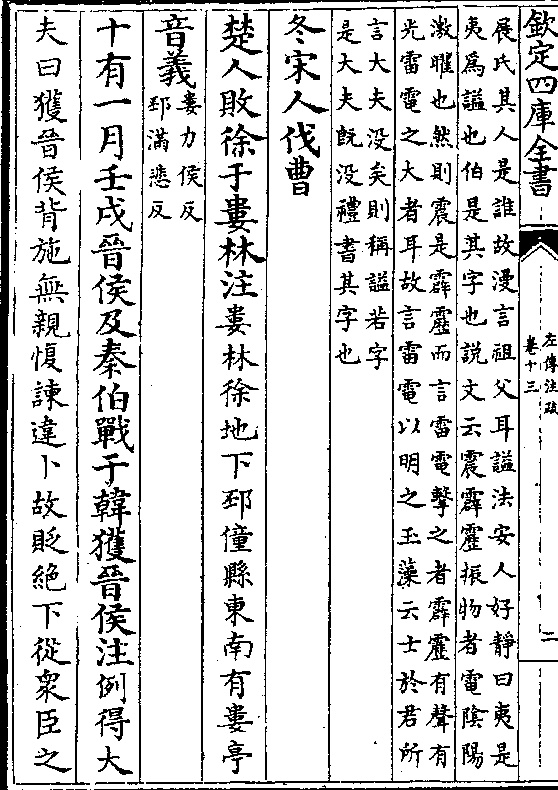 欽定四庫全書
左傳注疏
卷十三
二
展氏其人是誰故漫言祖父耳諡法安人好靜曰夷是
夷為諡也伯是其字也説文云震霹靂振物者電陰陽
激曜也然則震是霹靂而言雷電擊之者霹靂有聲有
光雷電之大者耳故言雷電以明之玉藻云士於君所
言大夫没矣則稱諡若字
是大夫既没禮書其字也
冬宋人伐曹
楚人敗徐于婁林注婁林徐地下邳僮縣東南有婁亭
音義婁力侯反
邳蒲悲反
十有一月壬戌晉侯及秦伯戰于韓獲晉侯注例得大
夫曰獲晉侯背施無親愎諫違卜故貶絶下從衆臣之